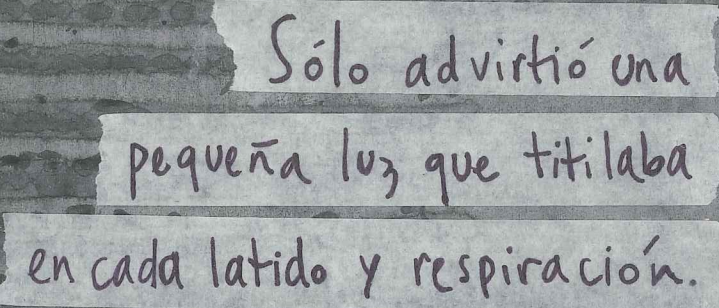 Sólo advirtió una
pequeña luz que titilaba
en cada latido y respiración.